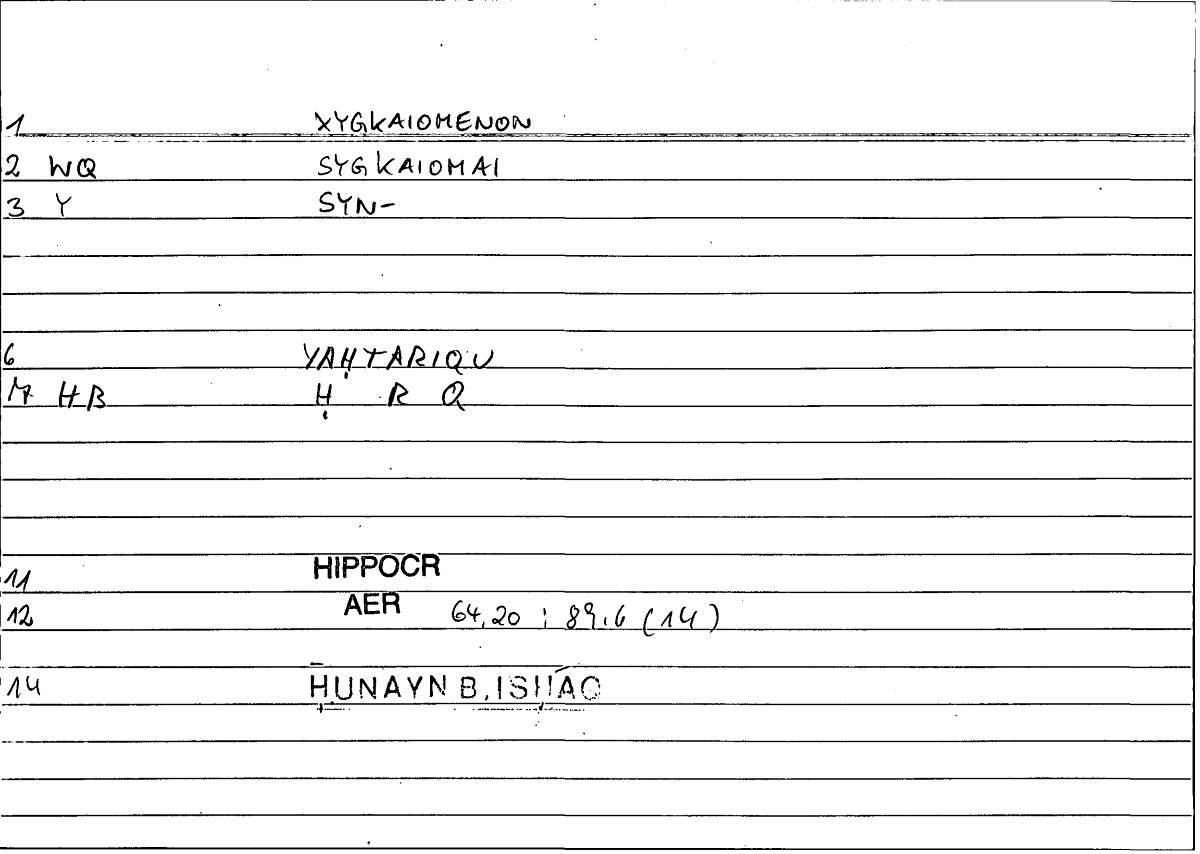 1 XYGKAIOMENON
2 WQ SYGKAIOMAI
3 Y SYN-
6 YAḤTARIQU
7 HB Ḥ R Q
11 HIPPOCR
12 AER 64,20 ; 89,6 (14)
14 ḤUNAYN B. ISḤĀQ